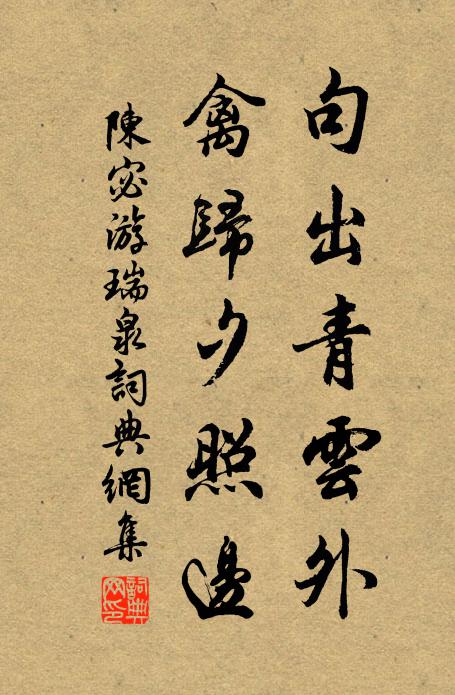 句出青雲外
禽歸夕照邊
陳宓游瑞泉詞典網集
詞典网印